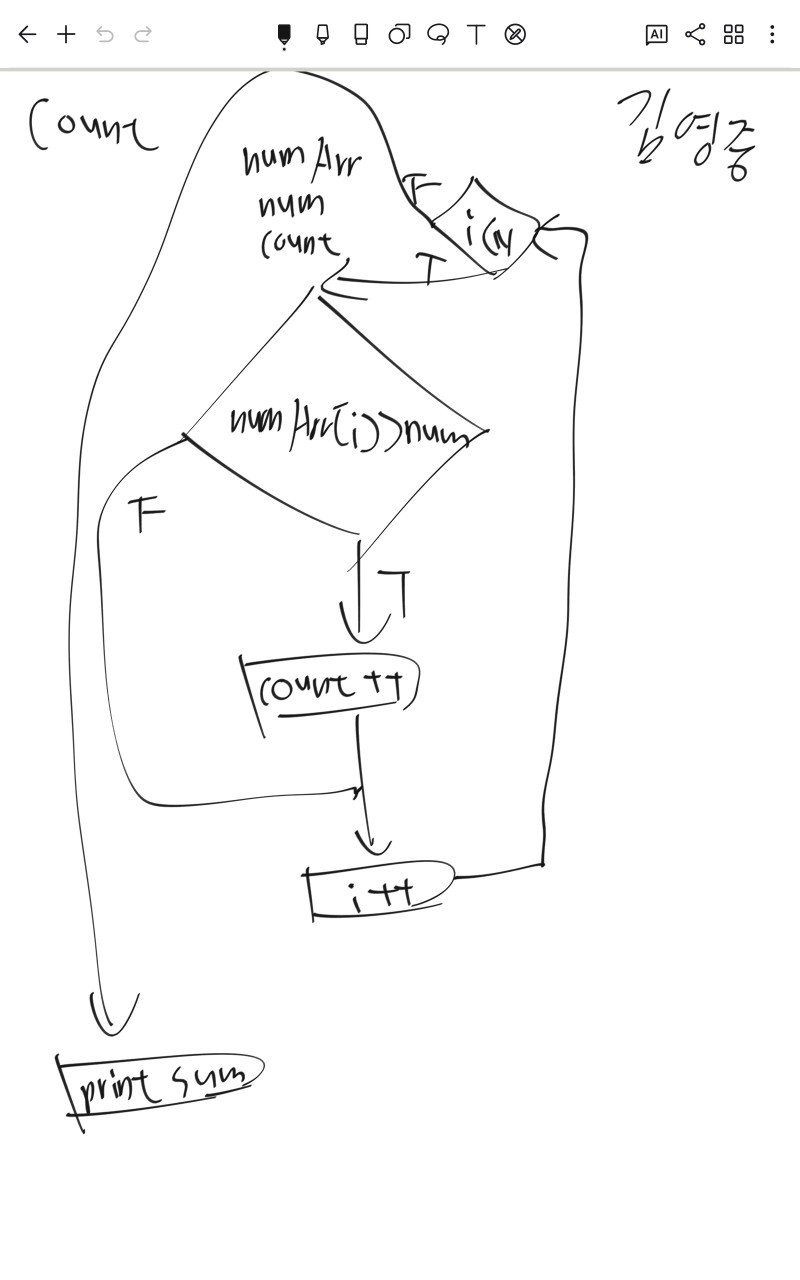 Count
김영중
numArr
num
count
F
i<N
T
numArr[i]>num
F
T
count++
i++
print sum